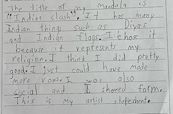 The title of my Mandala is
"Indian slash". It has many
Indian things such as Divas
and Indian flags. I chose it
because it represents my
religion. I think I did pretty
good. I just could have made
more room. I was also
social and I shared
This is my artist